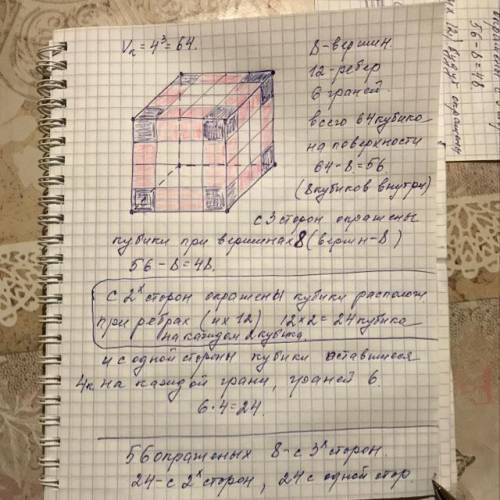 Vк = 4³ = 64.
8-вершин.
12-ребер
6 граней.
всего 64 кубика
на поверхности
64-8=56
(8 кубиков внутри)
с 3 сторон окрашены
кубики при вершинах 8 (вершин-8)
56-8=48.
с 2ˣ сторон окрашены кубики располож
при ребрах (их 12) 12×2=24 кубика
на каждом 2 кубика.
и с одной стороны кубики оставшиеся
4к на каждой грани, граней 6.
6·4=24.
56 окрашеных 8-с 3ˣ сторон.
24-с 2ˣ сторон, 24 с одной стор.
56-8=48
(их 12) будут окрашены